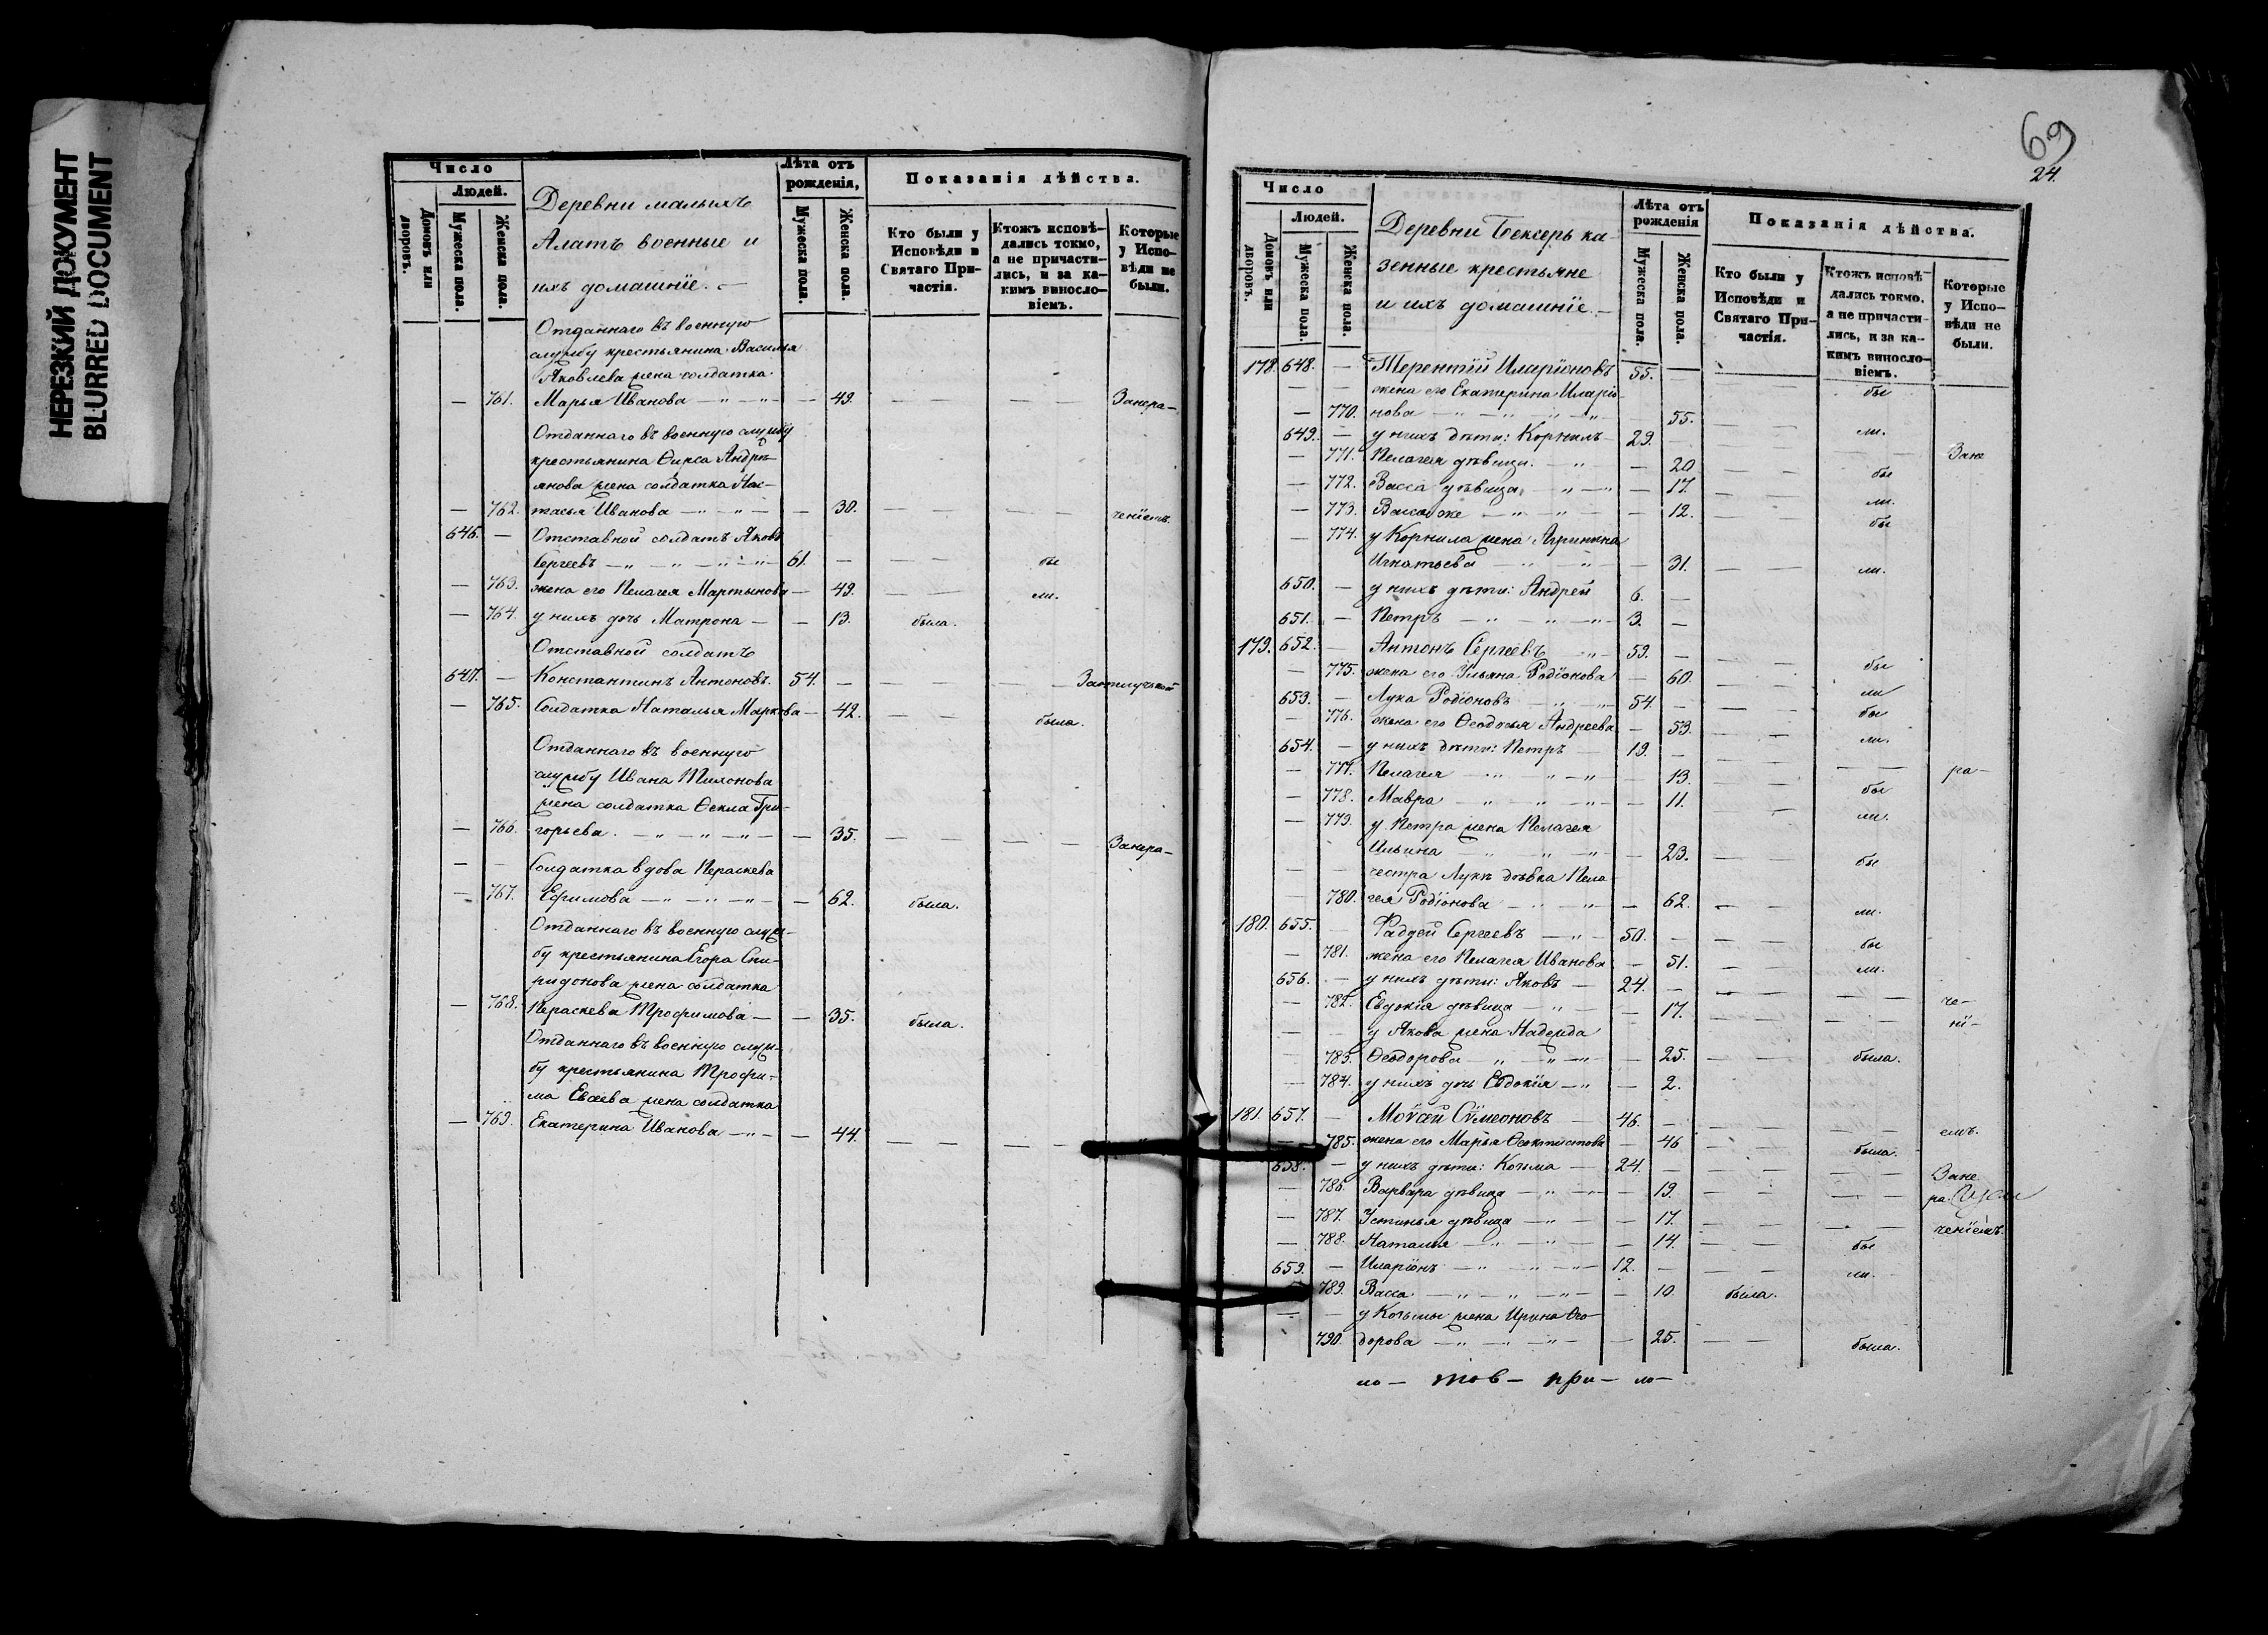 НЕРЕЗКИЙ ДОКУМЕНТ
BLURRED DOCUMENT
Число
Людей.
Домовъ или дворовъ.
Мужеска пола.
Женска пола.
Деревни малыхъ
Алатъ военные и
ихъ домашніе. —
Лѣта отъ рожденія,
Мужеска пола.
Женска пола.
Показанія дѣйства.
Кто были у Исповѣди и Святаго Причастія.
Ктожъ исповѣдались токмо, а не причастились, и за какимъ винословіемъ.
Которые у Исповѣди не были.
Отданнаго въ военную
службу крестьянина Василья
Яковлева жена солдатка
— 761. Марья Ивнова — 49. Занера-
Отданнаго въ военную службу
крестьянина
Андрі-
янова жена солдатка Нас-
— 762. тасья Иванова — 30. ченіемъ
646. — Отставной солдатъ Яковъ
Сергеевъ 61. — бы
— 763. жена его Пелагея Мартынова — 49. ли.
— 764. у нихъ дочь Матрона — 13. была.
Отставной солдатъ
647. — Константинъ Антоновъ. 54. —
— 765. Солдатка Наталья Маркова — 42. была.
Отданнаго въ военную
службу Ивана Тихонова
жена солдатка Ѳекла Гри-
— 766. горьева. — 35. Занера-
Солдатка вдова Параскева
— 767. Ефимова — 62. была.
Отданнаго въ военную служ-
бу крестьянина Егора Спи-
ридонова жена солдатка
— 768. Параскева Трофимова — 35. была.
Отданнаго въ военную служ-
бу крестьянина Трофи-
ма Евсеева жена солдатка
— 769. Екатерина Иванова — 44.
69
24.
Число
Людей.
Домовъ или дворовъ.
Мужеска пола.
Женска пола.
Деревни Бексерь ка-
зенные крестьяне
и ихъ домашніе. —
Лѣта отъ рожденія
Мужеска пола.
Женска пола.
Показанія дѣйства.
Кто были у Исповѣди и Святаго Причастія.
Ктожъ исповѣдались токмо, а не причастились, и за какимъ винословіемъ.
Которые у Исповѣди не были.
178. 648. — Терентій Иларіоновъ 55. — бы
жена его Екатерина Иларіо-
— 770. нова 55. ли.
649. — у нихъ дѣти: Корнилъ 29. — Зане
— 771. Пелагея дѣвица — 20 бы
— 772. Васса дѣвица — 17. ли.
— 773. Васса же — 12. бы
— 774. у Корнила жена Агрипина
Игнатьева — 31. ли.
650. — у нихъ дѣти: Андрей 6. —
651. — Петръ 3. —
179. 652. — Антонъ Сергеевъ 59. — бы
— 775. жена его Ульяна Родіонова — 60. ли
653. — Лука Родіоновъ 54. — бы
— 776. жена его Ѳеодосья Андреева — 53. ли.
654. — у нихъ дѣти: Петръ 19. — ра-
— 777. Пелагея — 13. бы
— 778. Мавра — 11. ли.
— 779. у Петра жена Пелагея
Ильина — 23. бы
сестра Луки дѣвка Пела
780. гея Родіонова — 62. ли.
180. 655. — Фаддей Сергеевъ 50. — бы
— 781. жена его Пелагея Иванова — 51. ли.
656. — у нихъ дѣти: Яковъ 24. — че-
— 782. Евдокія дѣвица — 17. ні-
у Якова жена Надежда
— 783. Ѳеодорова — 25. была.
— 784. у нихъ дочь Евдокія — 2.
181. 657. — Моѵсей Сѵмеоновъ 46. — емъ.
785. жена его Марья Ѳеоктистова — 46 была.
658. — у нихъ дѣти: Козьма 24. — Зане
— 786. Варвара дѣвица — 19. ра.
— 787. Устинья дѣвица — 17. ченіемъ.
— 788. Наталья — 14. бы
659. — Иларіонъ 12. — ли.
789. Васса — 10. была.
у Козьмы жена Ирина Ѳео
790. дорова — 25. была.
ло — тов — при — ло —